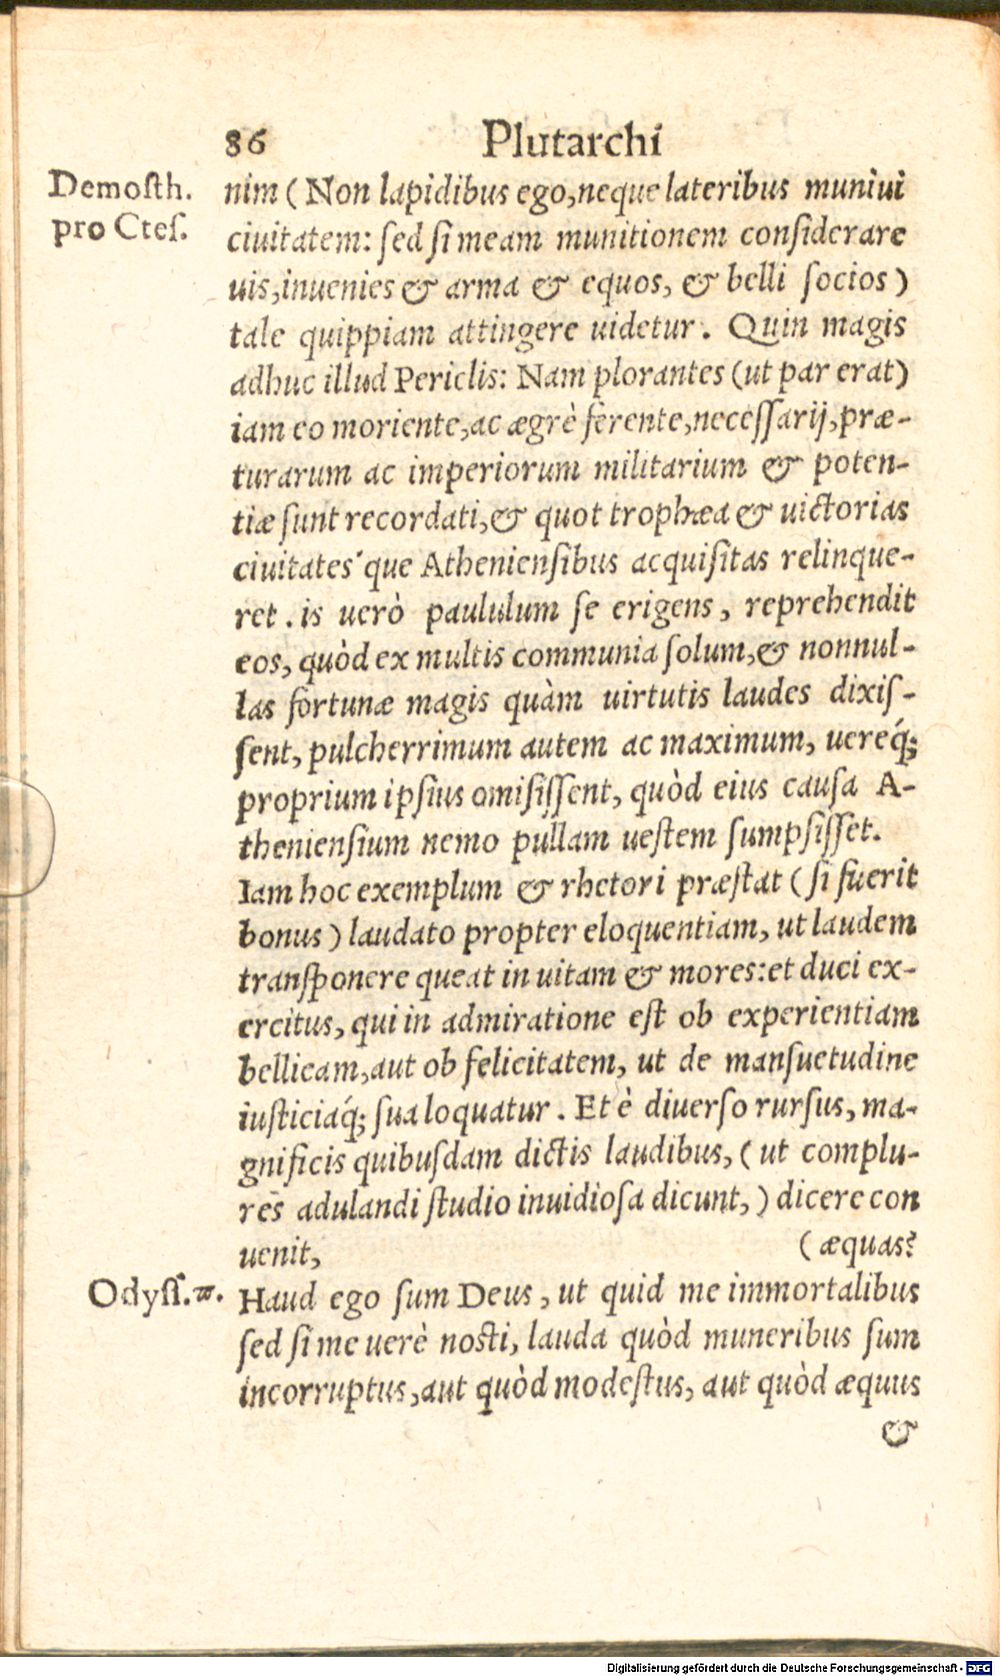 86 Plutarchi
Demosth.
pro Ctes.
nim (Non lapidibus ego, neque lateribus muniui
ciuitatem: sed si meam munitionem considerare
uis, inuenies & arma & equos, & belli socios)
tale quippiam attingere uidetur. Quin magis
adhuc illud Periclis: Nam plorantes (ut par erat)
iam eo moriente, ac ægrè ferente, necessarij, præ-
turarum ac imperiorum militarium & poten-
tiæ sunt recordati, & quot trophæa & uictorias
ciuitates'que Atheniensibus acquisitas relinque-
ret. is uerò paululum se erigens, reprehendit
eos, quòd ex multis communia solum, & nonnul-
las fortunæ magis quàm uirtutis laudes dixis-
sent, pulcherrimum autem ac maximum, uereq́;
proprium ipsius omisissent, quòd eius causa A-
theniensium nemo pullam uestem sumpsisset.
Iam hoc exemplum & rhetori præstat (si fuerit
bonus) laudato propter eloquentiam, ut laudem
transponere queat in uitam & mores: et duci ex-
ercitus, qui in admiratione est ob experientiam
bellicam, aut ob felicitatem, ut de mansuetudine
iusticiaq́; sua loquatur. Et è diuerso rursus, ma-
gnificis quibusdam dictis laudibus, (ut complu-
res adulandi studio inuidiosa dicunt,) dicere con
uenit, (æquas?
Odyss. π.
Haud ego sum Deus, ut quid me immortalibus
sed si me uerè nosti, lauda quòd muneribus sum
incorruptus, aut quòd modestus, aut quòd æquus
&
Digitalisierung gefördert durch die Deutsche Forschungsgemeinschaft - DFG